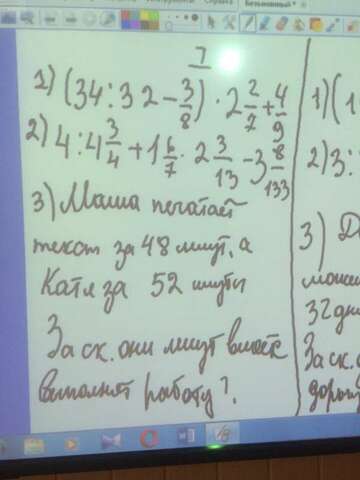 7
1) (34:32 - 3/8) · 2 2/7 + 4/9
2) 4:4 3/4 + 1 6/7 · 2 3/13 - 3 8/133
3) Маша печатает
текст за 48 минут, а
Катя за 52 минуты
За ск. они минут вместе
выполнят работу?
1) (1
2) 3:
3)
32 дн
За ск.